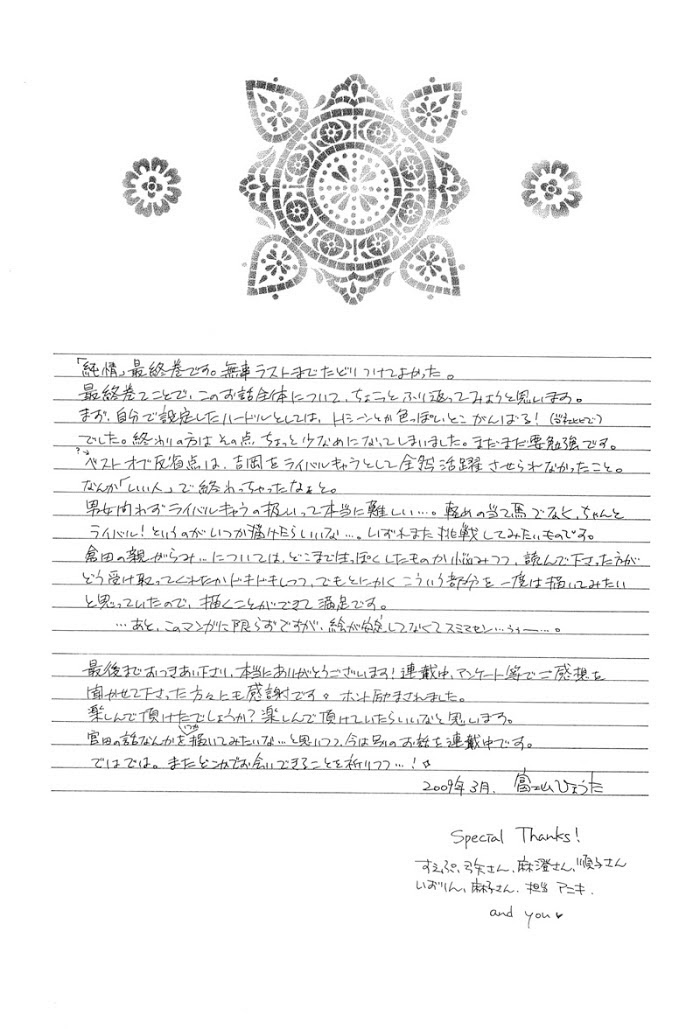 「純情」最終巻です。無事ラストまでたどりつけてよかった。
最終巻てことで、このお話全体について、ちょこっとふり返ってみようと思います。
まず、自分で設定したハードルとしては、Hシーンとか色っぽいとこがんばる!
でした。終わりの方はその点、ちょっと少なめになってしまいました。まだまだ要勉強です。
ベストオブ反省点は、吉岡をライバルキャラとして全然活躍させられなかったこと。
なんか「いい人」で終わっちゃったなぁと。
男女問わずライバルキャラの扱いって本当に難しい…。軽めの当て馬でなく、ちゃんと
ライバル!というのがいつか描けたらいいな…。いずれまた挑戦してみたいものです。
倉田の親がらみ…については、どこまでほしぽくしたものか悩みつつ、読んで下さった方が
どう受け取ってくれたかドキドキしつつ、でもとにかくこういう部分を一度は描いてみたい
と思っていたので、描くことができて満足です。
…あと、このマンガに限らずですが、絵が安定してなくてスミマセン…うぅー…。
最後までおつきあい下さり、本当にありがとうございます!連載中、アンケート等でご感想を
聞かせて下さった方々にも感謝です。ホント励まされました。
楽しんで頂けたでしょうか?楽しんで頂けていたらいいなと思います。
宮田の話なんかをいつか描いてみたいな…と思いつつ、今は別のお話を連載中です。
ではでは。またどこかでお会いできることを祈りつつ…!☆
2009年3月. 富士山ひょうた
Special Thanks!
すえぷ、弓矢さん、麻澄さん、順子さん
いおりん、麻子さん、担当アニキ.
and you♥